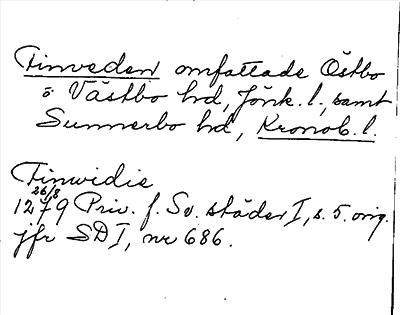 Finveden omfattade Östbo
o. Västbo hd, Jönk. l., samt
Sunnerbo hd, Kronob. l.
Finvidie
26/8
1279 Priv. f. Sv. städer I, s. 5. orig.
jfr SD I, nr 686.